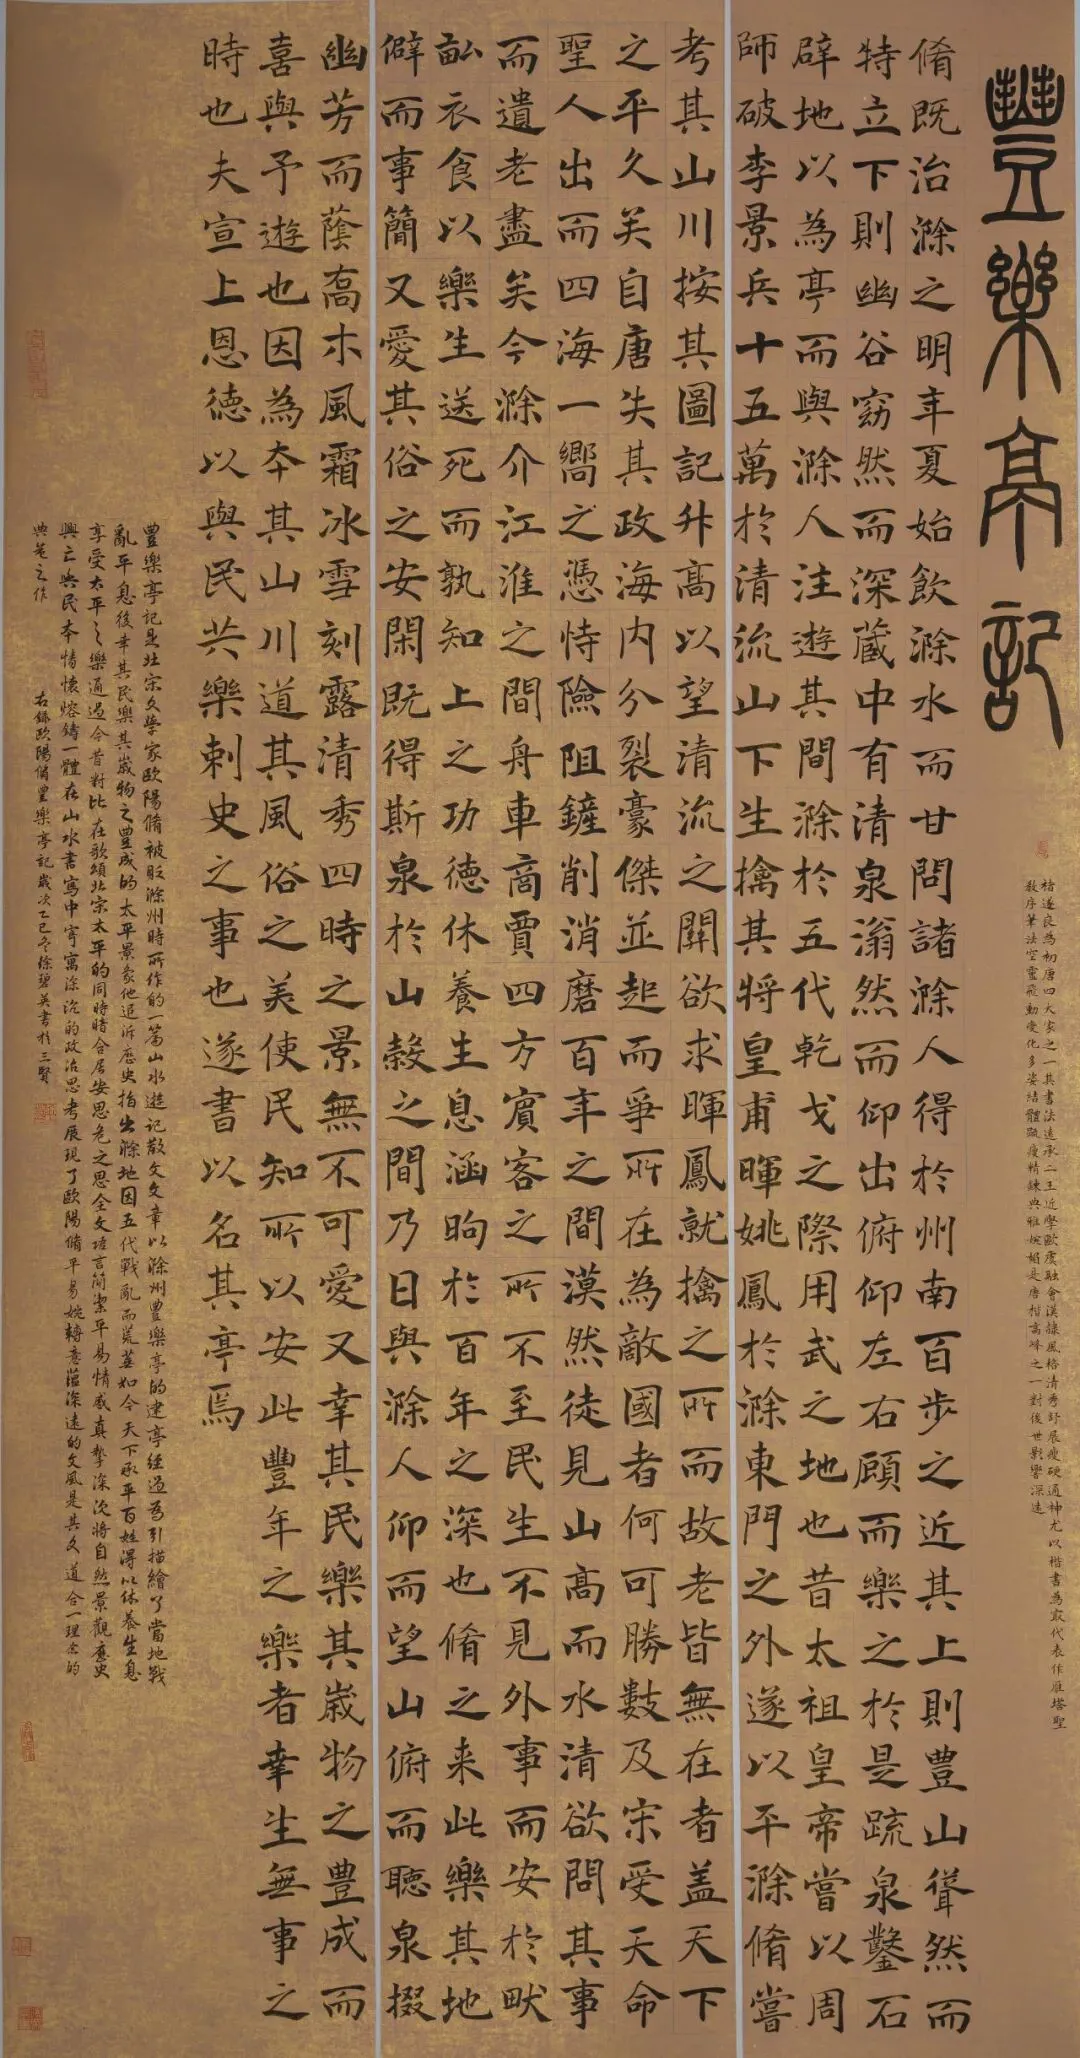 豐樂亭記
脩既治滁之明年夏始飲滁水而甘問諸滁人得於州南百步之近其上則豊山聳然而
特立下則幽谷窈然而深蔵中有清泉滃然而仰出俯仰左右顧而樂之於是疏泉鑿石
辟地以為亭而與滁人注遊其間滁於五代乾戈之際用武之地也昔太祖皇帝嘗以周
師破李景兵十五萬於清流山下生擒其将皇甫暉姚鳳於滁東門之外遂以平滁脩嘗
考其山川按其圖記升髙以望清流之關欲求暉鳳就擒之所而故老皆無在者盖天下
之平久矣自唐失其政海内分裂豪傑並起而爭所在為敵國者何可勝數及宋受天命
聖人出而四海一嚮之憑恃險阻鏟削消磨百年之間漠然徒見山髙而水清欲問其事
而遺老盡矣今滁介江淮之間舟車商賈四方賓客之所不至民生不見外事而安於畎
畝衣食以樂生送死而孰知上之功徳休養生息涵煦於百年之深也脩之来此樂其地
僻而事簡又愛其俗之安閑既得斯泉於山穀之間乃日與滁人仰而望山俯而聽泉掇
幽芳而蔭喬木風霜冰雪刻露清秀四時之景無不可愛又幸其民樂其歳物之豊成而
喜與予遊也因為本其山川道其風俗之美使民知所以安此豐年之樂者幸生無事之
時也夫宣上恩徳以與民共樂刺史之事也遂書以名其亭焉
褚遂良為初唐四大家之一其書法遠承二王近學歐虞融會漢隸風格清秀舒展瘦硬通神尤以楷書為最代表作雁塔聖
教序筆法空靈飛動變化多姿結體疏瘦精鍊典雅婉媚是唐楷高峰之一對後世影響深遠
豐樂亭記是北宋文學家歐陽脩被貶滁州時所作的一篇山水遊記散文文章以滁州豐樂亭的建亭經過為引描繪了當地戰
亂平息後幸其民樂其歲物之豊成的太平景象他追訴歷史指出滁地因五代戰亂而荒蕪如今天下承平百姓得以休養生息
享受太平之樂通過今昔對比在歌頌北宋太平的同時暗合居安思危之思全文語言簡潔平易情感真摯深沉將自然景觀歷史
興亡與民本情懷熔鑄一體在山水書寫中寄寓深沉的政治思考展現了歐陽脩平易婉轉意蕴深遠的文風是其文道合一理念的
典範之作
右錄歐陽脩豊樂亭記歲次乙巳冬徐碧英書於三賢